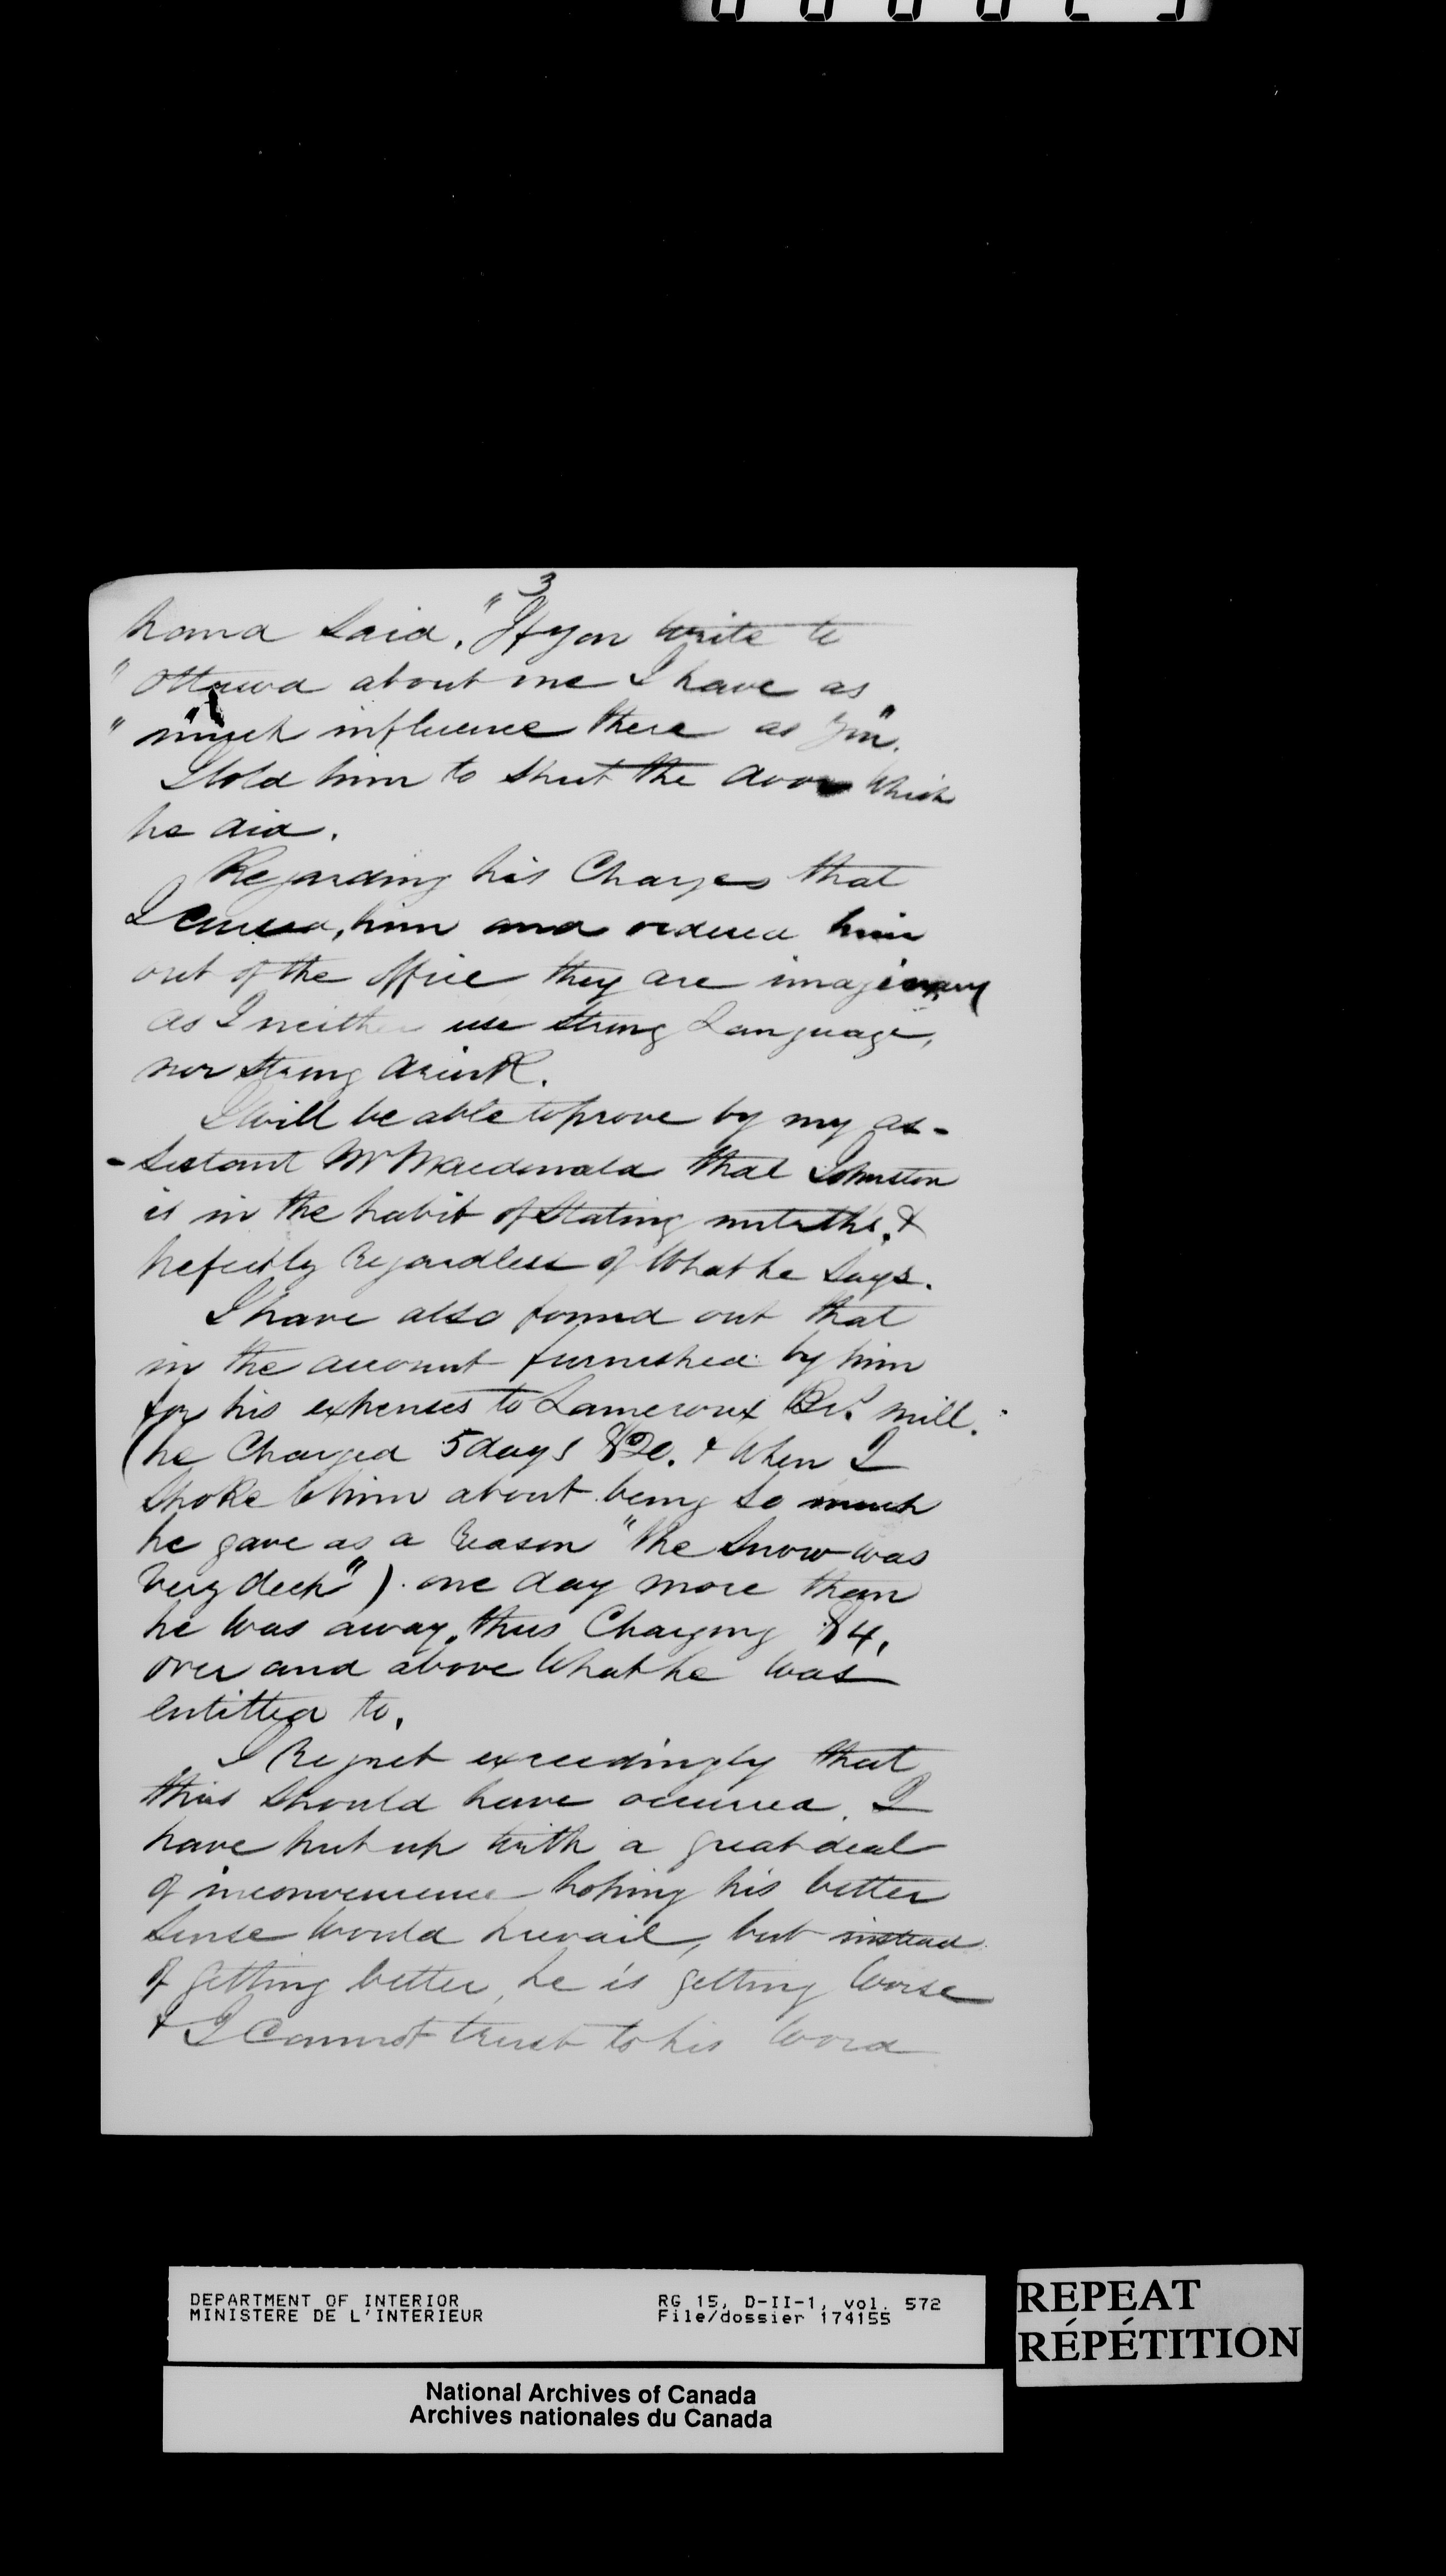 3
hand said, "If you write to
" Ottawa about me I have as
" much influence there as you".
I told him to shut the door which
he did.
Regarding his Charges that
I cursed, him and ordered him
out of the office they are imaginary
as I neither use strong Language,
nor strong drink.
I will be able to prove by my as-
-sistant Mr Macdonald that Johnston
is in the habit of stating untruths, &
perfectly regardless of what he says.
I have also found out that
in the account furnished by him
for his expenses to Lameroux Brs. mill.
(he Charged 5 days $20. & when I
spoke to him about being so much
he gave as a reason "the snow was
very deep") one day more than
he was away, thus Charging $4,
over and above what he was
entitled to.
I Regret exceedingly that
this should have occurred. I
have put up with a great deal
of inconvenience hoping his better
sense would prevail, but instead
of getting better, he is getting worse
& I cannot trust to his word
DEPARTMENT OF INTERIOR RG 15, D-II-1, vol. 572
MINISTERE DE L'INTERIEUR File/dossier 174155
REPEAT
RÉPÉTITION
National Archives of Canada
Archives nationales du Canada